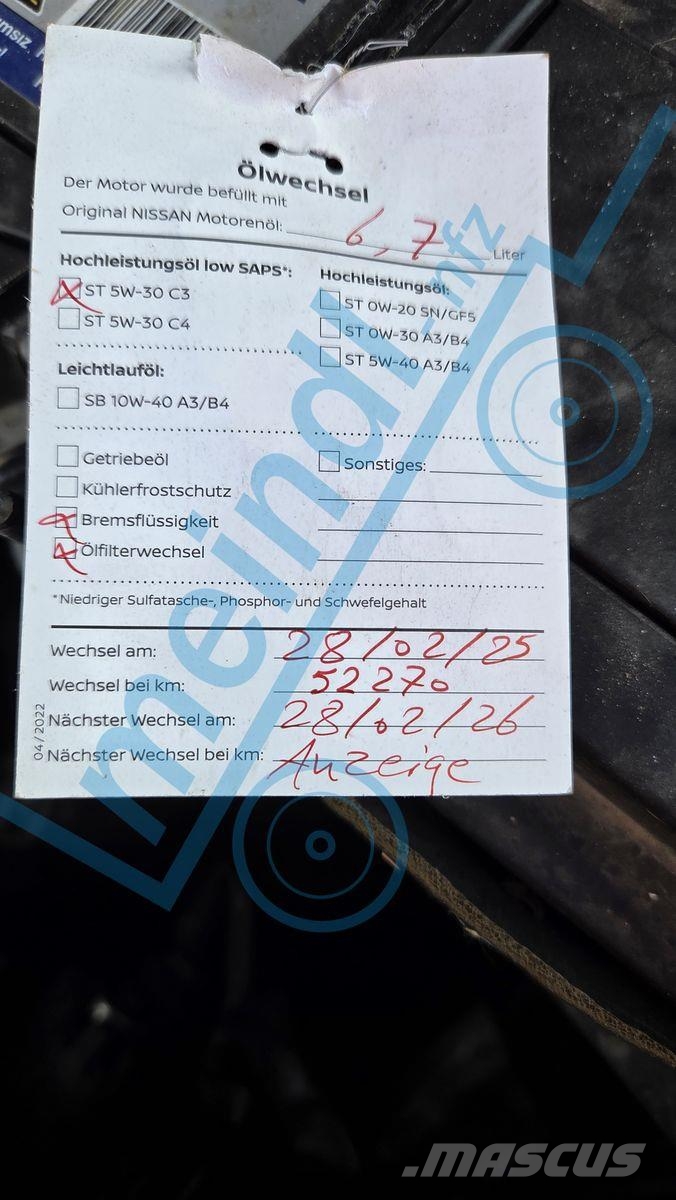 Ölwechsel
Der Motor wurde befüllt mit
Original NISSAN Motorenöl: 6,7 Liter
Hochleistungsöl low SAPS*:
ST 5W-30 C3
ST 5W-30 C4
Hochleistungsöl:
ST 0W-20 SN/GF5
ST 0W-30 A3/B4
ST 5W-40 A3/B4
Leichtlauföl:
SB 10W-40 A3/B4
Getriebeöl
Kühlerfrostschutz
Bremsflüssigkeit
Ölfilterwechsel
Sonstiges:
*Niedriger Sulfatasche-, Phosphor- und Schwefelgehalt
Wechsel am: 28/02/25
Wechsel bei km: 52270
Nächster Wechsel am: 28/02/26
Nächster Wechsel bei km: Anzeige
04/2022
meindl-nfz
.MASCUS